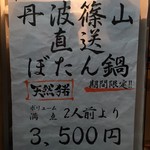 丹波篠山
直送
ぼたん鍋
天然猪
期間限定!!
ボリューム
満点
2人前より
3,500円